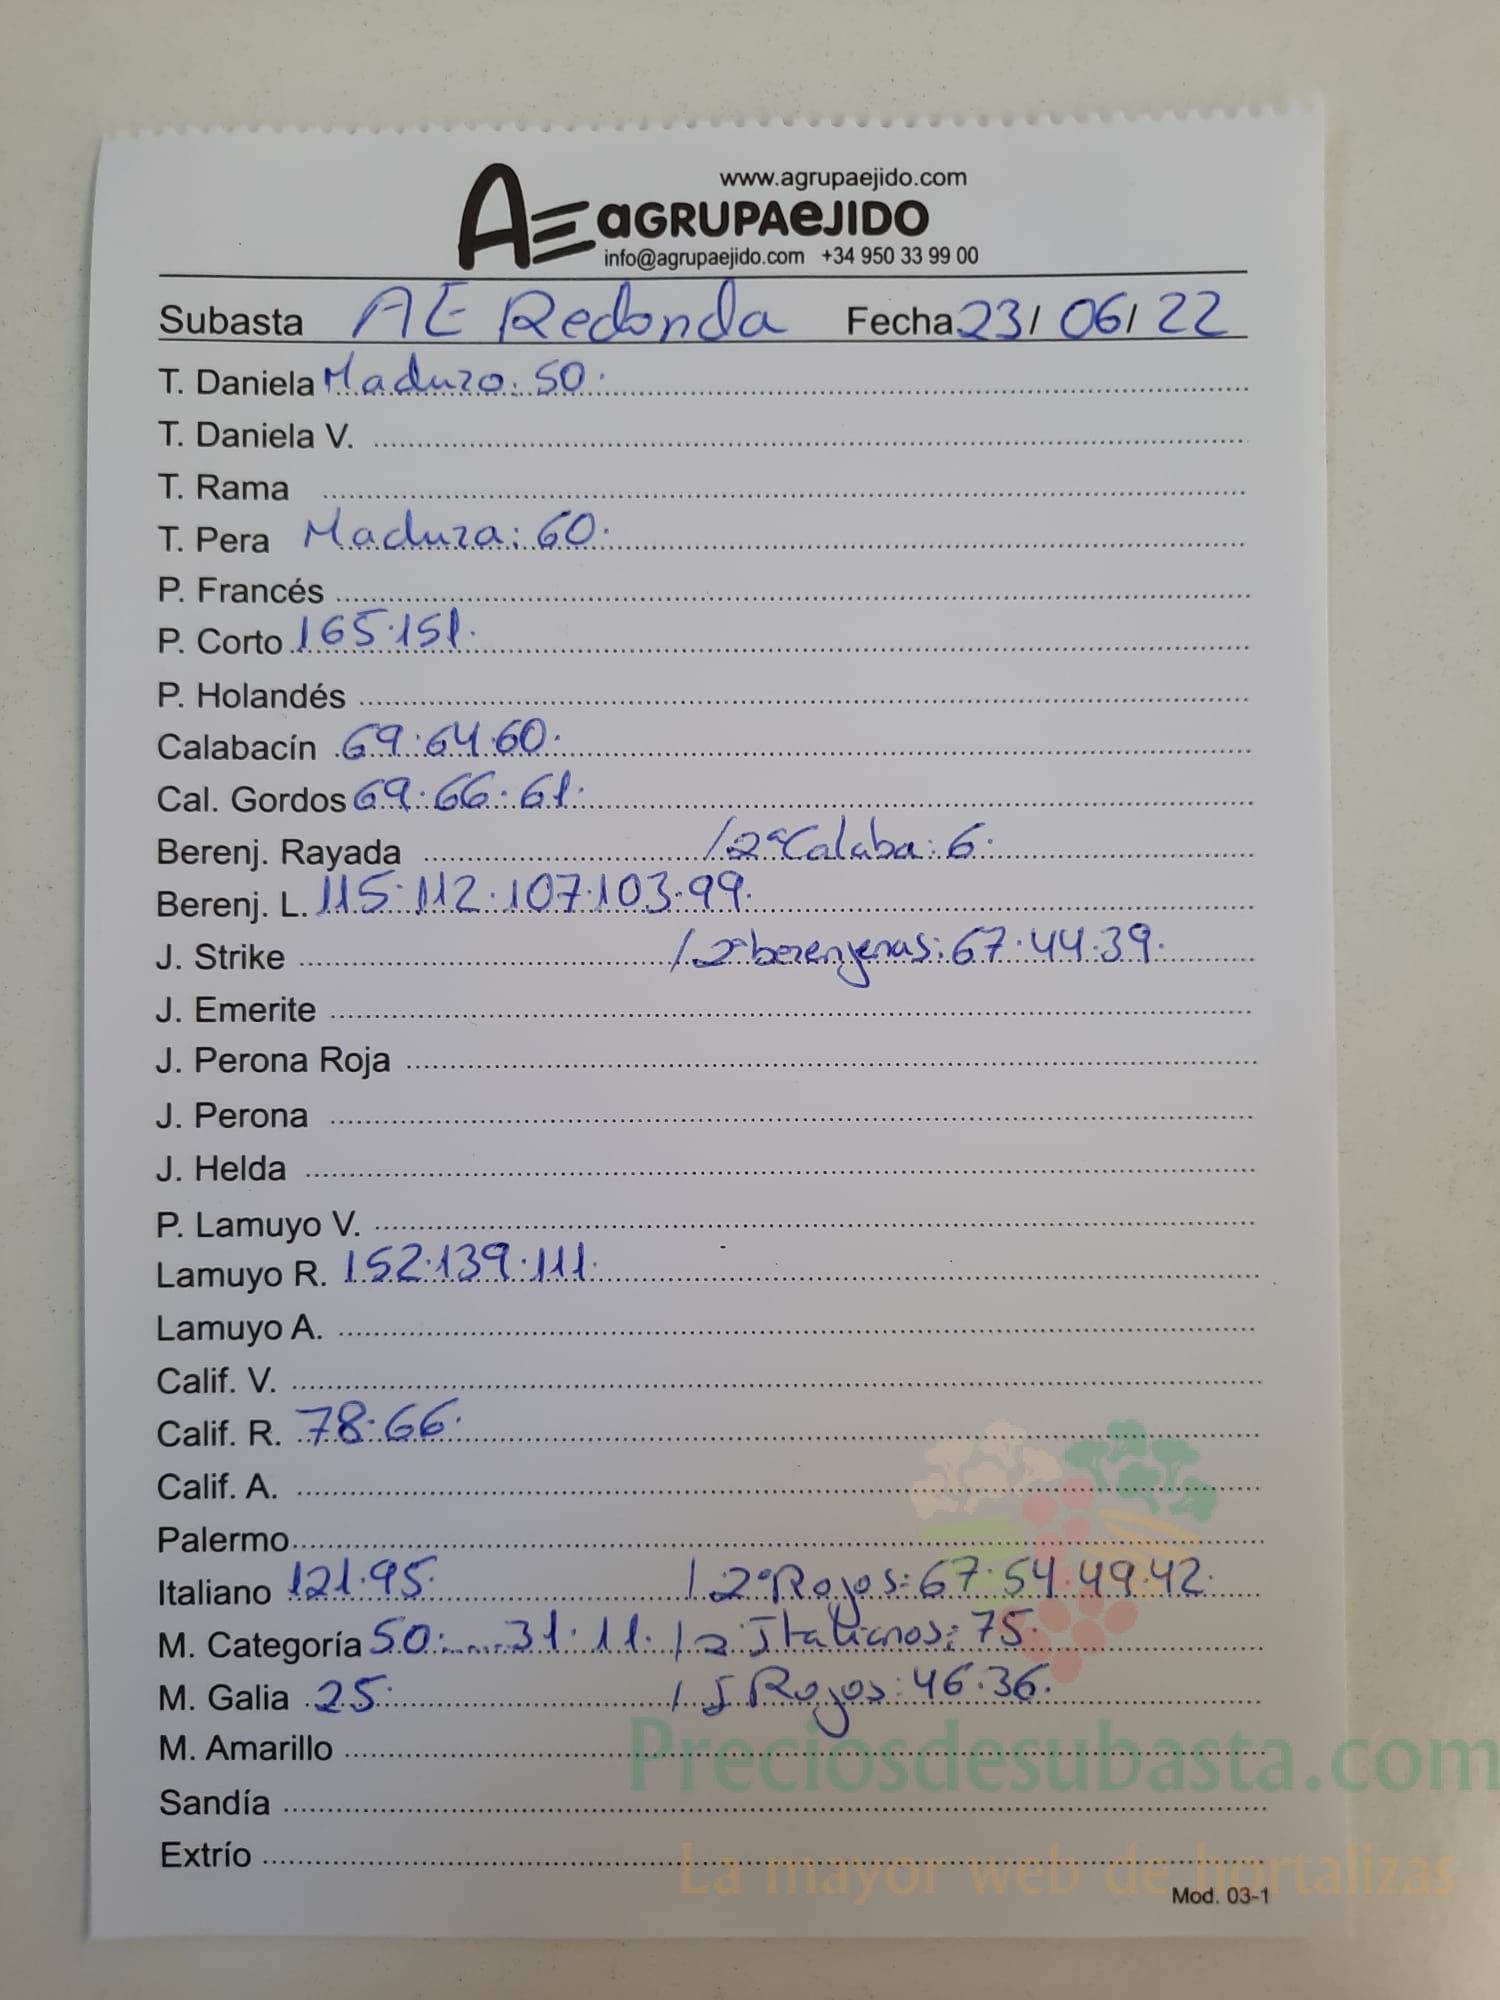 www.agrupaejido.com
AE aGRUPAeJIDO
info@agrupaejido.com +34 950 33 99 00
Subasta AE Redonda Fecha 23/ 06/ 22
T. Daniela Maduro: 50.
T. Daniela V.
T. Rama
T. Pera Madura: 60.
P. Francés
P. Corto 165.151.
P. Holandés
Calabacín 69.64.60.
Cal. Gordos 69.66.61.
Berenj. Rayada /2ªCalaba: 6.
Berenj. L. 115.112.107.103.99.
J. Strike /2ªberenjenas: 67.44.39.
J. Emerite
J. Perona Roja
J. Perona
J. Helda
P. Lamuyo V.
Lamuyo R. 152.139.111.
Lamuyo A.
Calif. V.
Calif. R. 78.66.
Calif. A.
Palermo
Italiano 121.95. / 2ªRojos: 67.54.49.42.
M. Categoría 50.....31.11. / 2 Italianos: 75.
M. Galia 25. / Rojos: 46.36.
M. Amarillo
Preciosdesubasta.com
Sandía
Extrío
La mayor web de hortalizas
Mod. 03-1